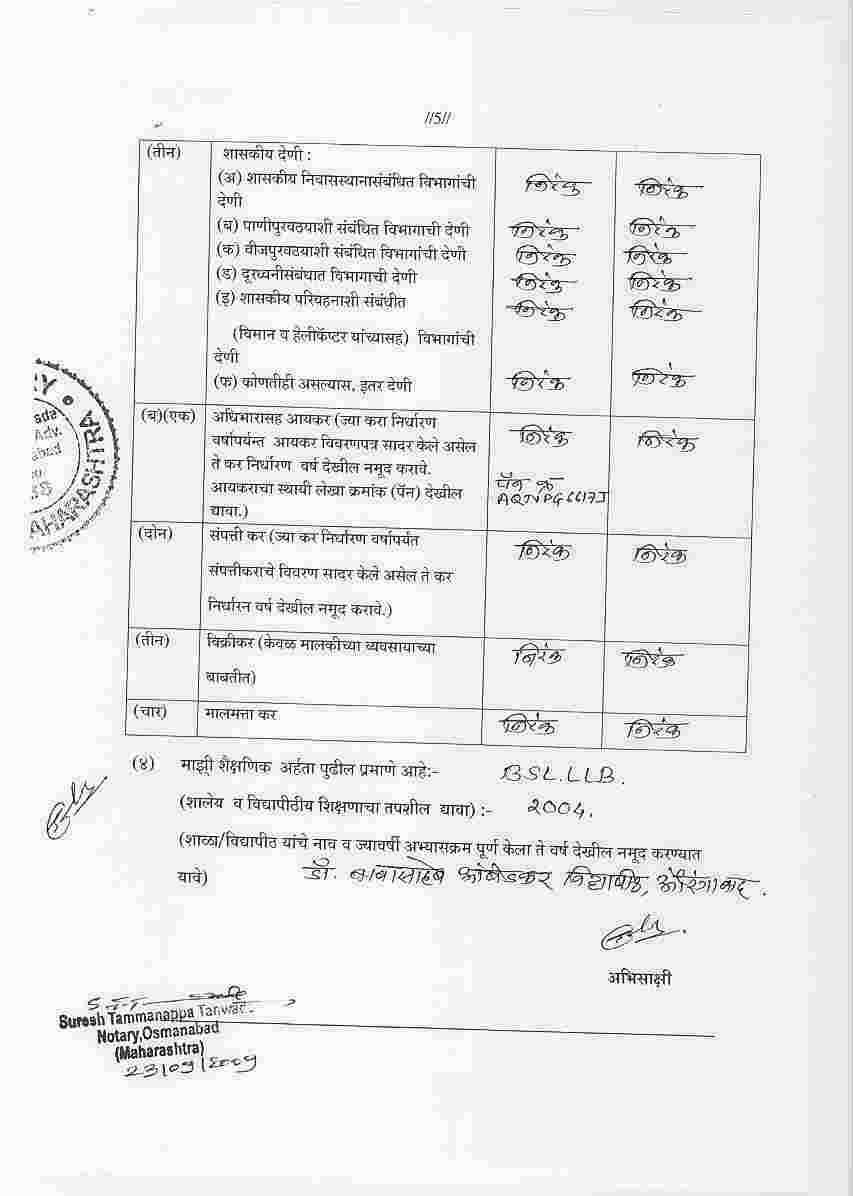 //5//
(तीन) शासकीय देणी :
(अ) शासकीय निवासस्थानासंबंधित विभागांची निरंक निरंक
देणी
(ब) पाणीपुरवठयाशी संबंधित विभागाची देणी निरंक निरंक
(क) वीजपुरवठयाशी संबंधित विभागांची देणी निरंक निरंक
(ड) दूरध्वनीसंबंधात विभागाची देणी निरंक निरंक
(इ) शासकीय परिवहनाशी संबंधीत निरंक निरंक
(विमान व हेलीकॅप्टर यांच्यासह) विभागांची
देणी
(फ) कोणतीही असल्यास, इतर देणी निरंक निरंक
(ब)(एक) अधिभारासह आयकर (ज्या करा निर्धारण निरंक निरंक
वर्षापर्यन्त आयकर विवरणपत्र सादर केले असेल
ते कर निर्धारण वर्ष देखील नमूद करावे.
आयकराचा स्थायी लेखा क्रमांक (पॅन) देखील पॅन क्र
द्यावा.) AQJVPG6617J
(दोन) संपत्ती कर (ज्या कर निर्धारण वर्षापर्यंत निरंक निरंक
संपत्तीकराचे विवरण सादर केले असेल ते कर
निर्धारन वर्ष देखील नमूद करावे.)
(तीन) विक्रीकर (केवळ मालकीच्या व्यवसायाच्या निरंक निरंक
बाबतीत)
(चार) मालमत्ता कर निरंक निरंक
(४) माझी शैक्षणिक अर्हता पुढील प्रमाणे आहे:- BSL.LLB.
(शालेय व विद्यापीठीय शिक्षणाचा तपशील द्यावा) :- 2004.
(शाळा/विद्यापीठ यांचे नाव व ज्यावर्षी अभ्यासक्रम पूर्ण केला ते वर्ष देखील नमूद करण्यात
यावे) डॉ. बाबासाहेब आंबेडकर विद्यापीठ, औरंगाबाद.
अभिसाक्षी
Suresh Tammanappa Tanwade
Notary,Osmanabad
(Maharashtra)
23/09/2009
MAHARASHTRA
Adv.